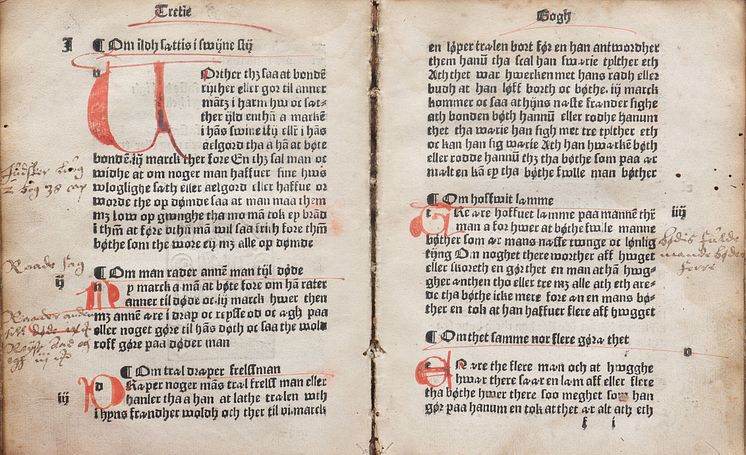 Tretie
I ¶ Om ildh sættis i swijne stij
v Orther thz saa at bondē
rijther eller gør til anner
mātz i harm hwoc sæt-
ther ijld enhū a markē
i hās swine stij ellē i hās
ælgord tha a hā at bøte
bondē.iij marck ther fore En thz sal man oc
widhe at om noger man haffuer sine hws
wloglighe sæth eller aelgord eller haffue or
worde the op dømde saa at man maa them
mz low op gwnghe tha mo mā tok ey brād
i thm at føre othā mā wil saa frih fore thm
bøthe som the wore eij mz alle op dømde
Raade sag
ij ¶ Om man rader annē man tijl døde
N y marck a mā at bøte fore om hā rater
anner til døde oc.iij marck hwer then
mz annē ære i drap oc repsse od oc ægh paa
eller noget gøre til hās døth oc saa the wold
roff gøre paa døder man
iij ¶ Om træl dræper frelssman
d Ræper noger mās træl frelss man eller
hanler tha a han at lathe trælen wth
i hijns frændher woldh och ther til vi.marck
Gogh
en løper trælen bort før en han antwordher
them hanū tha scal han swarie tylther eth
Ath thet war hwerken met hans radh eller
budh at han løff borth oc bøthe iij marck
kommer oc saa at hijns næste frænder sighe
ath bonden bøth hannū eller rodhe hanum
thet tha warie han sigh met tre tylther eth
oc kan han sig warie Ath han hwarkē bøth
eller rodde hannū thz tha bøthe som paa ær
mælen kā ey tha bøthe fwlle man bøther
iiij ¶ Om hoffwit læmme
t Re ære hoffuet læmme paa mannē thȳ
man a for hwer at bøthe fwlle manne
bøther som ær mans næsse twnge oc lønlig
tijng Om noghet there worther aff hwget
eller skoreth en gørthet en man at hā hwg-
gher ænthen tho eller tre mz alle ath eth are-
de tha bøthe icke mere fore æn en mans bø-
ther en tok at han haffuer flere aff hwgget
v ¶ Om thet samme nor flere gøræ thet
e N ære the flere man och at hwgghe
hwar there saar en læm aff eller flere
tha bøthe hwer there soo meghet som han
gør paa hanum en tok at thet ær alt ath eth
k i